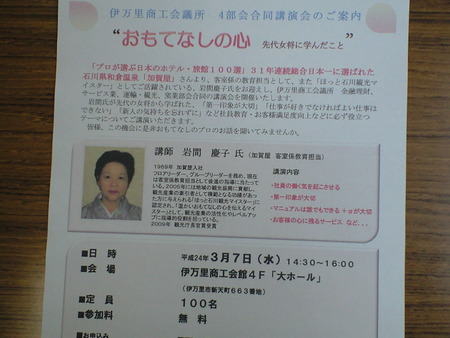 伊万里商工会議所 4部会合同講演会のご案内
“おもてなしの心 先代女将に学んだこと”
「プロが選ぶ日本のホテル・旅館100選」31年連続総合日本一に選ばれた
石川県和倉温泉「加賀屋」さんより、客室係の教育担当として、また「ほっと石川観光マ
イスター」としてご活躍されている、岩間慶子氏をお迎えし、伊万里商工会議所 金融理財、
サービス業、運輸・観光、窯業部会合同の講演会を開催いたします。
岩間氏が先代の女将から学ばれた、「第一印象が大切」「仕事が好きでなければよい仕事は
できない」「新人の気持ちを忘れずに」など社員教育・お客様満足度向上などに必ず役立つ
テーマについてご講演いただきます。
皆様、この機会に是非おもてなしのプロのお話を聞いてみませんか。
講師 岩間 慶子 氏 (加賀屋 客室係教育担当)
1969年 加賀屋入社
フロアリーダー、グループリーダーを務め、現在
は客室係教育担当として後進の指導に当たってい
る。2005年には地域の観光振興に貢献し、
観光産業の牽引者として模範となる功績があっ
た方に与えられる「ほっと石川観光マイスター」に
認定され、「温かいおもてなしの心を伝えるマイ
スター」として、観光産業の活性化やレベルアッ
プに指導的役割を担っている。
2009年 観光庁長官賞受賞
講演内容
・社員の働く気を起こさせる
・第一印象が大切
・マニュアルは誰でもできる +αが大切
・お客様の心に残るサービス など...
■日 時 平成24年 3月7日(水) 14:30~16:00
■会 場 伊万里商工会館4F「大ホール」
(伊万里市新天町663番地)
■定 員 100名
■参加料 無 料
■お申込み